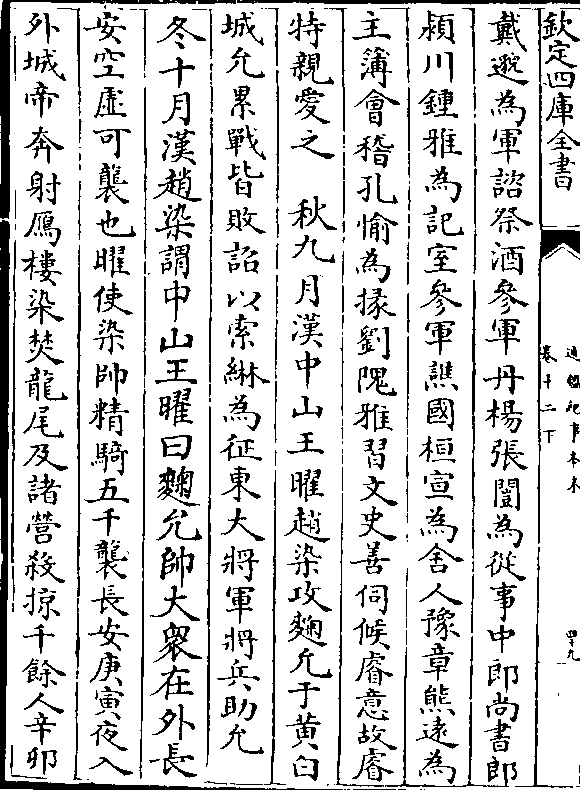 欽定四庫全書
通鑑紀事本末
卷十二下
四十九
戴邈為軍諮祭酒參軍丹楊張闓為從事中郎尚書郎
潁川鍾雅為記室參軍譙國桓宣為舍人豫章熊遠為
主簿會稽孔愉為掾劉隗雅習文史善伺候睿意故睿
特親愛之　秋九月漢中山王曜趙染攻麴允于黃白
城允累戰皆敗詔以索綝為征東大將軍將兵助允
冬十月漢趙染謂中山王曜曰麴允帥大衆在外長
安空虛可襲也曜使染帥精騎五千襲長安庚寅夜入
外城帝奔射鴈樓染焚龍尾及諸營殺掠千餘人辛卯